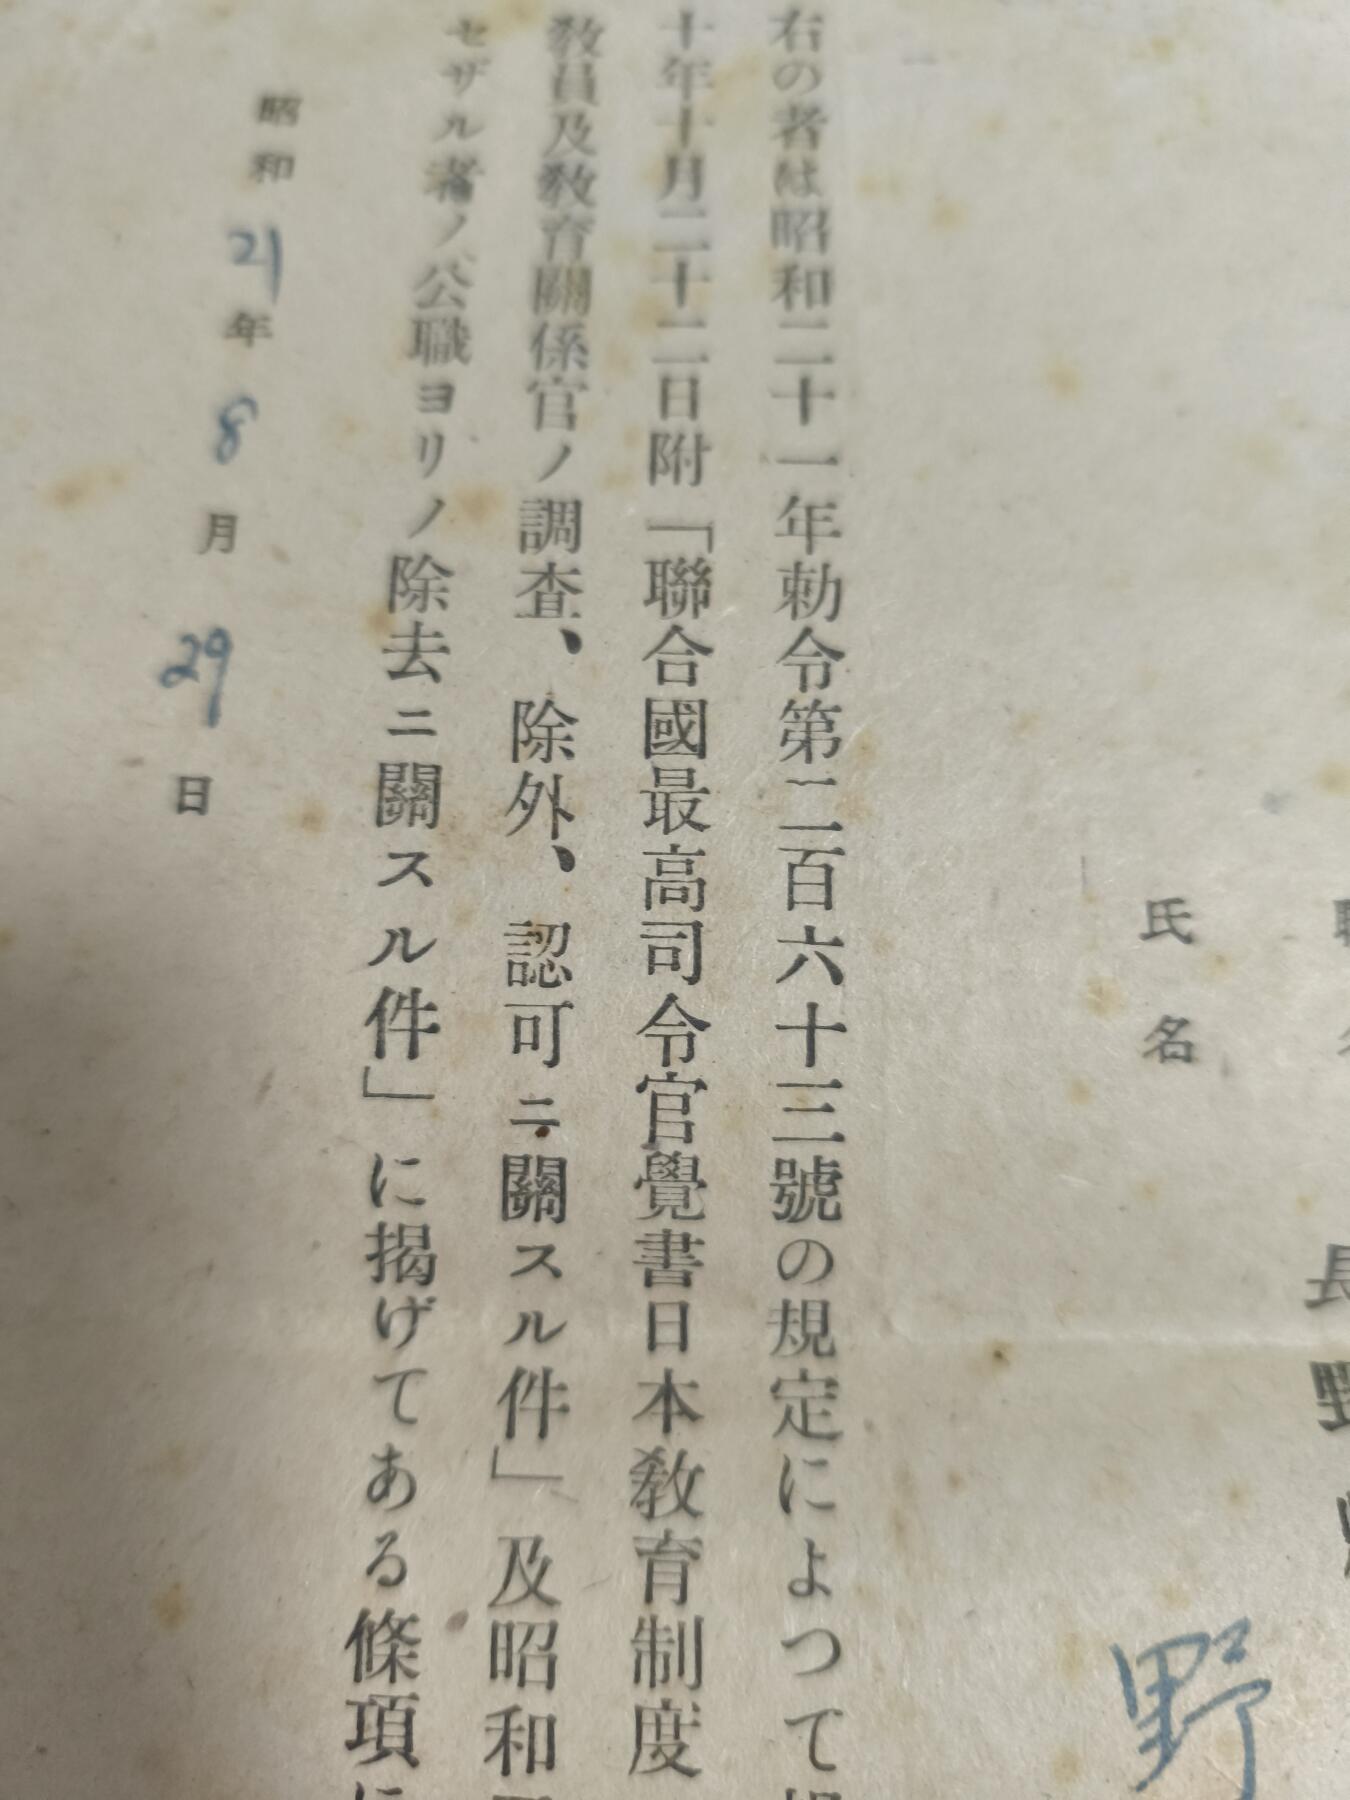 長野
氏名
野
右の者は昭和二十一年勅令第二百六十三號の規定によつて
十年十月二十二日附「聯合國最高司令官覺書日本教育制度
教員及教育關係官ノ調査、除外、認可ニ關スル件」及昭和
セザル者ノ公職ヨリノ除去ニ關スル件」に掲げてある條項に
昭和21年8月29日